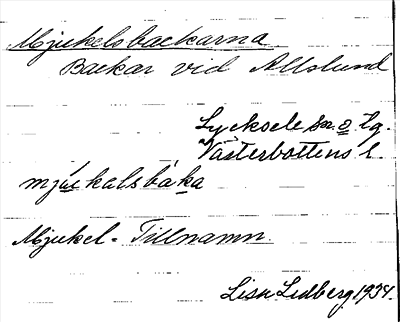 Mjukelsbackarna
Backar vid Allslund
Lycksele sn. o. tg.
Västerbottens l.
mjuckalsbáka
Mjukel- Tillnamn.
Lisa Lidberg 1934.